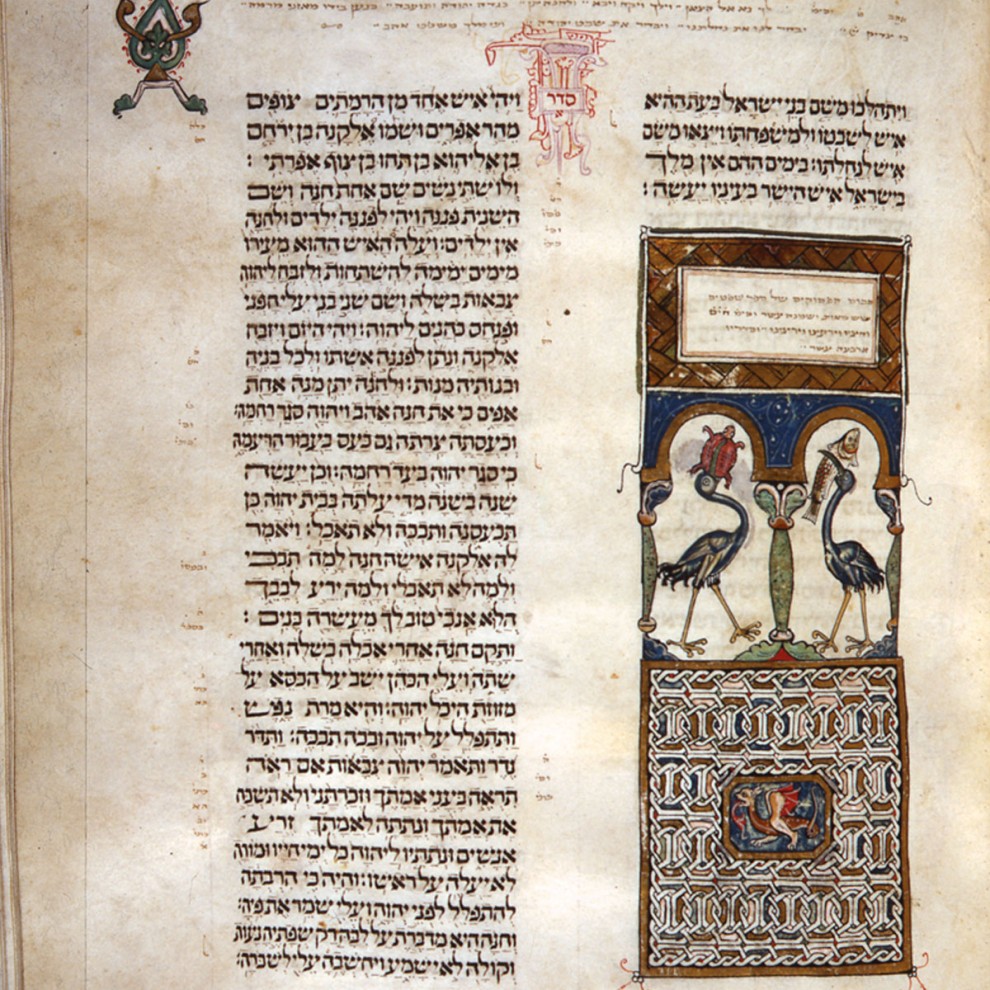 ויתהלכו משם בני ישראל בעת ההיא
איש לשבטו ולמשפחתו ויצאו משם
איש לנחלתו: בימים ההם אין מלך
בישראל איש הישר בעיניו יעשה:
סכום הפסוקים של ספר שופטים
שש מאות ושמנה עשר
ארבעה עשר
סדר
א
ויהי איש אחד מן הרמתים צופים
מהר אפרים ושמו אלקנה בן ירחם
בן אליהוא בן תחו בן צוף אפרתי:
ולו שתי נשים שם אחת חנה ושם
השנית פננה ויהי לפננה ילדים ולחנה
אין ילדים: ועלה האיש ההוא מעירו
מימים ימימה להשתחות ולזבח ליהוה
צבאות בשלה ושם שני בני עלי חפני
ופנחס כהנים ליהוה: ויהי היום ויזבח
אלקנה ונתן לפננה אשתו ולכל בניה
ובנותיה מנות: ולחנה יתן מנה אחת
אפים כי את חנה אהב ויהוה סגר רחמה:
וכעסתה צרתה גם כעס בעבור הרעמה
כי סגר יהוה בעד רחמה: וכן יעשה
שנה בשנה מדי עלתה בבית יהוה כן
תכעסנה ותבכה ולא תאכל: ויאמר
לה אלקנה אישה חנה למה תבכי
ולמה לא תאכלי ולמה ירע לבבך
הלא אנכי טוב לך מעשרה בנים:
ותקם חנה אחרי אכלה בשלה ואחרי
שתה ועלי הכהן ישב על הכסא על
מזוזת היכל יהוה: והיא מרת נפש
ותתפלל על יהוה ובכה תבכה: ותדר
נדר ותאמר יהוה צבאות אם ראה
תראה בעני אמתך וזכרתני ולא תשכח
את אמתך ונתתה לאמתך זרע
אנשים ונתתיו ליהוה כל ימי חייו ומורה
לא יעלה על ראשו: והיה כי הרבתה
להתפלל לפני יהוה ועלי שמר את פיה:
וחנה היא מדברת על לבה רק שפתיה נעות
וקולה לא ישמע ויחשבה עלי לשכרה: